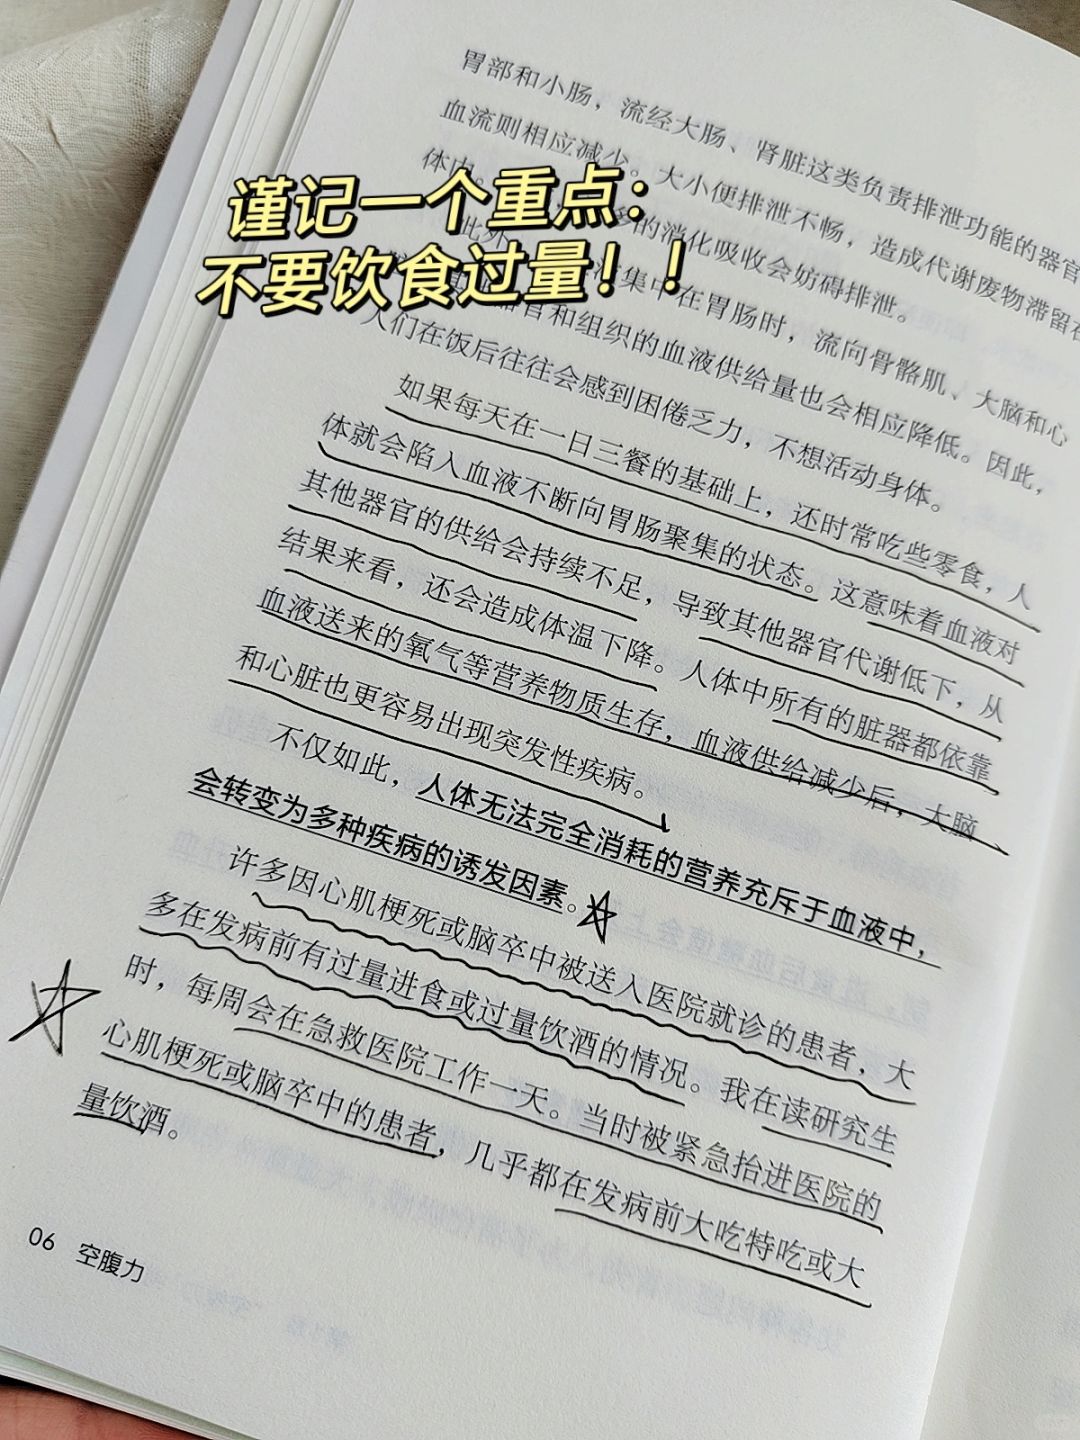 胃部和小肠，流经大肠、肾脏这类负责排泄功能的器官
血流则相应减少。大小便排泄不畅，造成代谢废物滞留在
体内。多的消化吸收会妨碍排泄。
谨记一个重点：
不要饮食过量！！
此外，集中在胃肠时，流向骨骼肌、大脑和心
器官和组织的血液供给量也会相应降低。因此，
人们在饭后往往会感到困倦乏力，不想活动身体。
如果每天在一日三餐的基础上，还时常吃些零食，人
体就会陷入血液不断向胃肠聚集的状态。这意味着血液对
其他器官的供给会持续不足，导致其他器官代谢低下，从
结果来看，还会造成体温下降。人体中所有的脏器都依靠
血液送来的氧气等营养物质生存，血液供给减少后，大脑
和心脏也更容易出现突发性疾病。
不仅如此，人体无法完全消耗的营养充斥于血液中，
会转变为多种疾病的诱发因素。
许多因心肌梗死或脑卒中被送入医院就诊的患者，大
多在发病前有过量进食或过量饮酒的情况。我在读研究生
时，每周会在急救医院工作一天。当时被紧急抬进医院的
心肌梗死或脑卒中的患者，几乎都在发病前大吃特吃或大
量饮酒。
06 空腹力